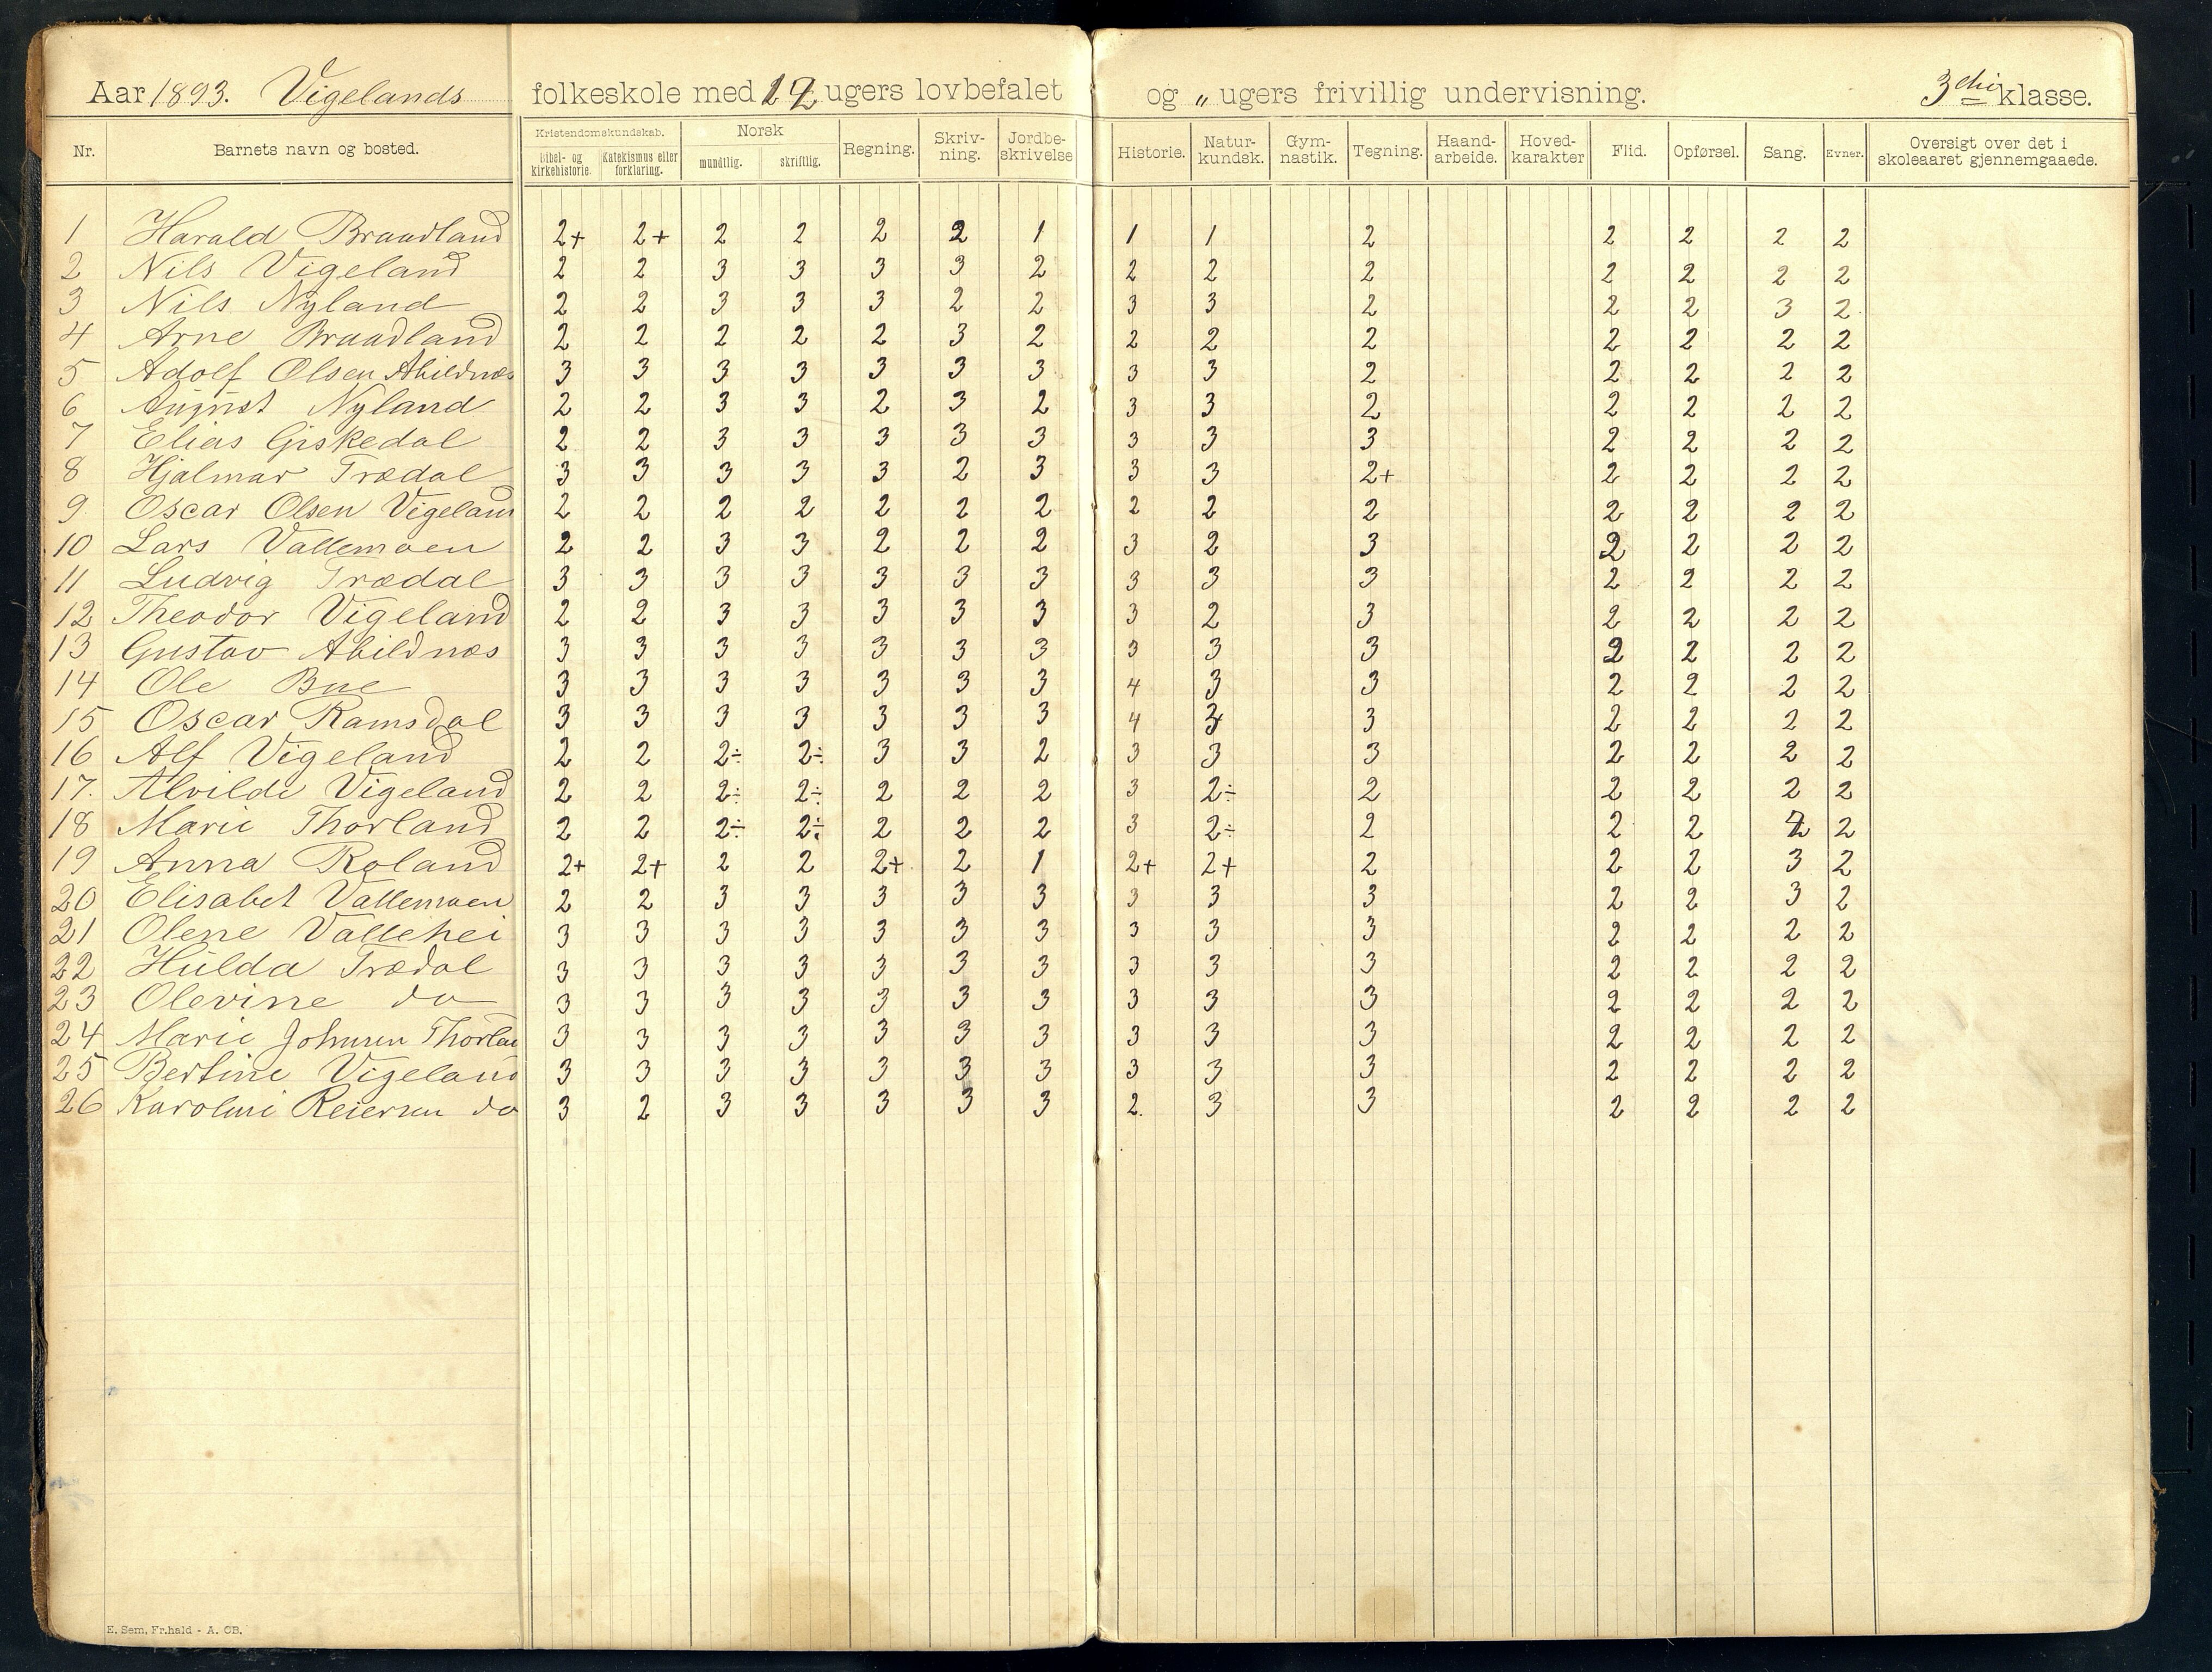 Aar 1893. Vigelands folkeskole med ugers lovbefalet og „ ugers frivillig undervisning. 3die klasse.
Nr. Barnets navn og bosted. Kristendomskundskab. Bibel- og kirkehistorie. Katekismus eller forklaring. Norsk mundtlig. skriftlig. Regning. Skriv-ning. Jordbe-skrivelse Historie. Natur-kundsk. Gym-nastik. Tegning. Haand-arbeide. Hoved-karakter Flid. Opførsel. Sang. Evner. Oversigt over det i skoleaaret gjennemgaaede.
1 Harald Braadland 2+ 2+ 2 2 2 2 1 1 1 2 2 2 2 2
2 Nils Vigeland 2 2 3 3 3 3 2 2 2 2 2 2 2 2
3 Nils Nyland 2 2 3 3 3 2 2 3 3 2 2 2 3 2
4 Arne Braadland 2 2 2 2 2 3 2 2 2 2 2 2 2 2
5 Adolf Olsen Abildnæs 3 3 3 3 3 3 3 3 3 2 2 2 2 2
6 August Nyland 2 2 3 3 2 3 2 3 3 2 2 2 2 2
7 Elias Giskedal 2 2 3 3 3 3 3 3 3 3 2 2 2 2
8 Hjalmar Trædal 3 3 3 3 3 2 3 3 3 2+ 2 2 2 2
9 Oscar Olsen Vigeland 2 2 2 2 2 2 2 2 2 2 2 2 2 2
10 Lars Vallemoen 2 2 3 3 2 2 2 3 2 3 2 2 2 2
11 Ludvig Trædal 3 3 3 3 3 3 3 3 3 3 2 2 2 2
12 Theodor Vigeland 2 2 3 3 3 3 3 3 2 3 2 2 2 2
13 Gustav Abildnæs 3 3 3 3 3 3 3 3 3 3 2 2 2 2
14 Ole Bue 3 3 3 3 3 3 3 4 3 3 2 2 2 2
15 Oscar Ramsdal 3 3 3 3 3 3 3 4 3 2 2 2 2
16 Alf Vigeland 2 2 2÷ 2÷ 3 3 2 3 3 3 2 2 2 2
17. Alvilde Vigeland 2 2 2÷ 2÷ 2 2 2 3 2÷ 2 2 2 2 2
18 Marie Thorland 2 2 2÷ 2÷ 2 2 2 3 2÷ 2 2 2 2
19 Anna Roland 2+ 2+ 2 2 2+ 2 1 2+ 2+ 2 2 2 3 2
20 Elisabet Vallemoen 2 2 3 3 3 3 3 3 3 3 2 2 3 2
21 Olene Vallehei 3 3 3 3 3 3 3 3 3 3 2 2 2 2
22 Hulda Trædal 3 3 3 3 3 3 3 3 3 3 2 2 2 2
23 Olevine do 3 3 3 3 3 3 3 3 3 3 2 2 2 2
24 Marie Johnsen Thorlan 3 3 3 3 3 3 3 3 3 3 2 2 2 2
25 Bertine Vigeland 3 3 3 3 3 3 3 3 3 3 2 2 2 2
26 Karoline Reiersen do 3 2 3 3 3 3 3 2. 3 3 2 2 2 2
E. Sem, Fr.hald - A. OB.